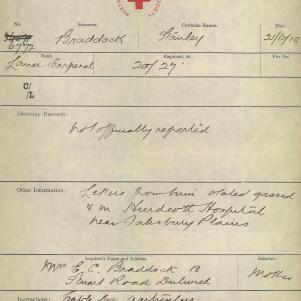 No.
Surname.
Christian Names.
6772
Braddock
Stanley
21/6/18
Rank.
Regiment, &c.
File No.
Lance Corporal
20/27
C/
/L
OFFICIAL REPORTS:
Not officially reported
Other Information:
Letters from him stated gassed
& in Hurdcott Hospital
near Salisbury Plains
Inquirer's Name and Address.
Relation.
Mrs E. C. Braddock 18
Mother
Stuart Road Dulwich
Instructions:
Cable for